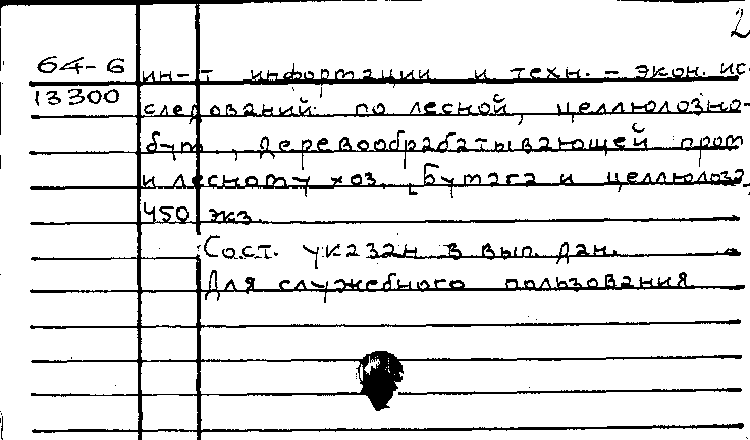 2
64-6 ин-т информации и техн.-экон. ис-
13300 следований по лесной, целлюлозно-
бум., деревообрабатывающей пром
и лесному хоз. [Бумага и целлюлоза,
450 экз.
Сост. указан в вып. дан.
Для служебного пользования